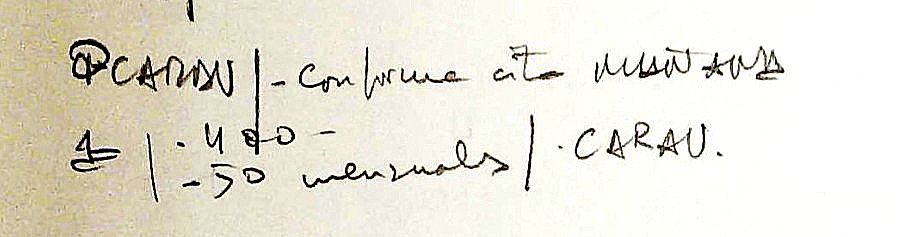 CARAU | - Conforme cita MAÑANA
1 | . 400 -
- 50 mensuales | . CARAU.